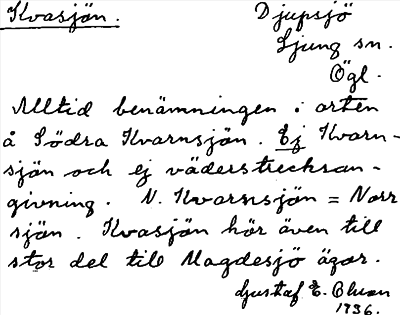 Kvasjön. Djupsjö
Ljung sn.
Ögl.
Alltid benämningen i orten
å Södra Kvarnsjön. Ej Kvarn-
sjön och ej väderstrecksan-
givning. N. Kvarnsjön = Norr
sjön. Kvasjön hör även till
stor del till Magdesjö ägor.
Gustaf E. Olson
1936.